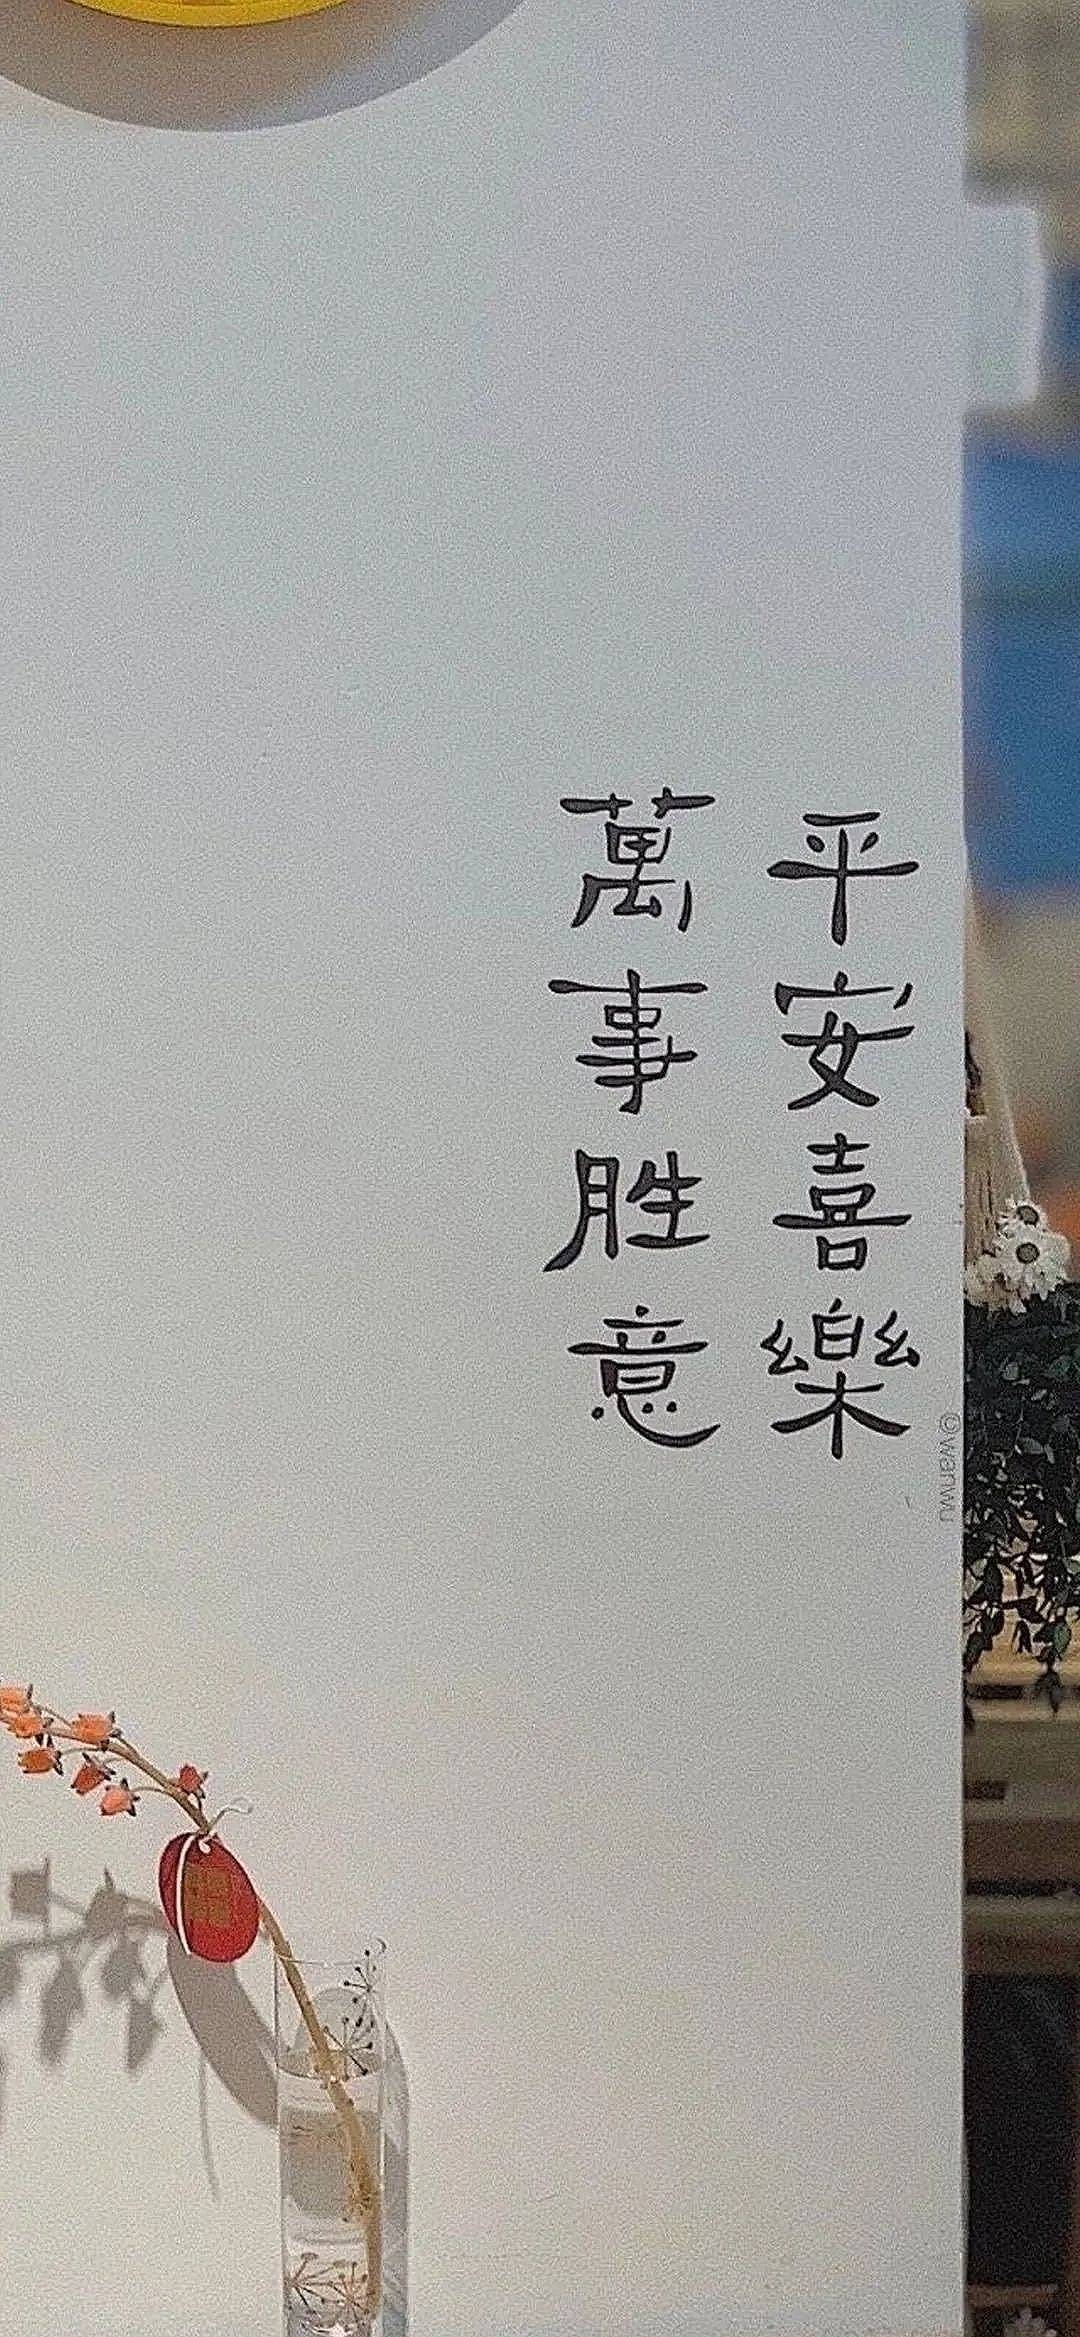 平安喜樂
萬事胜意
©wanwu